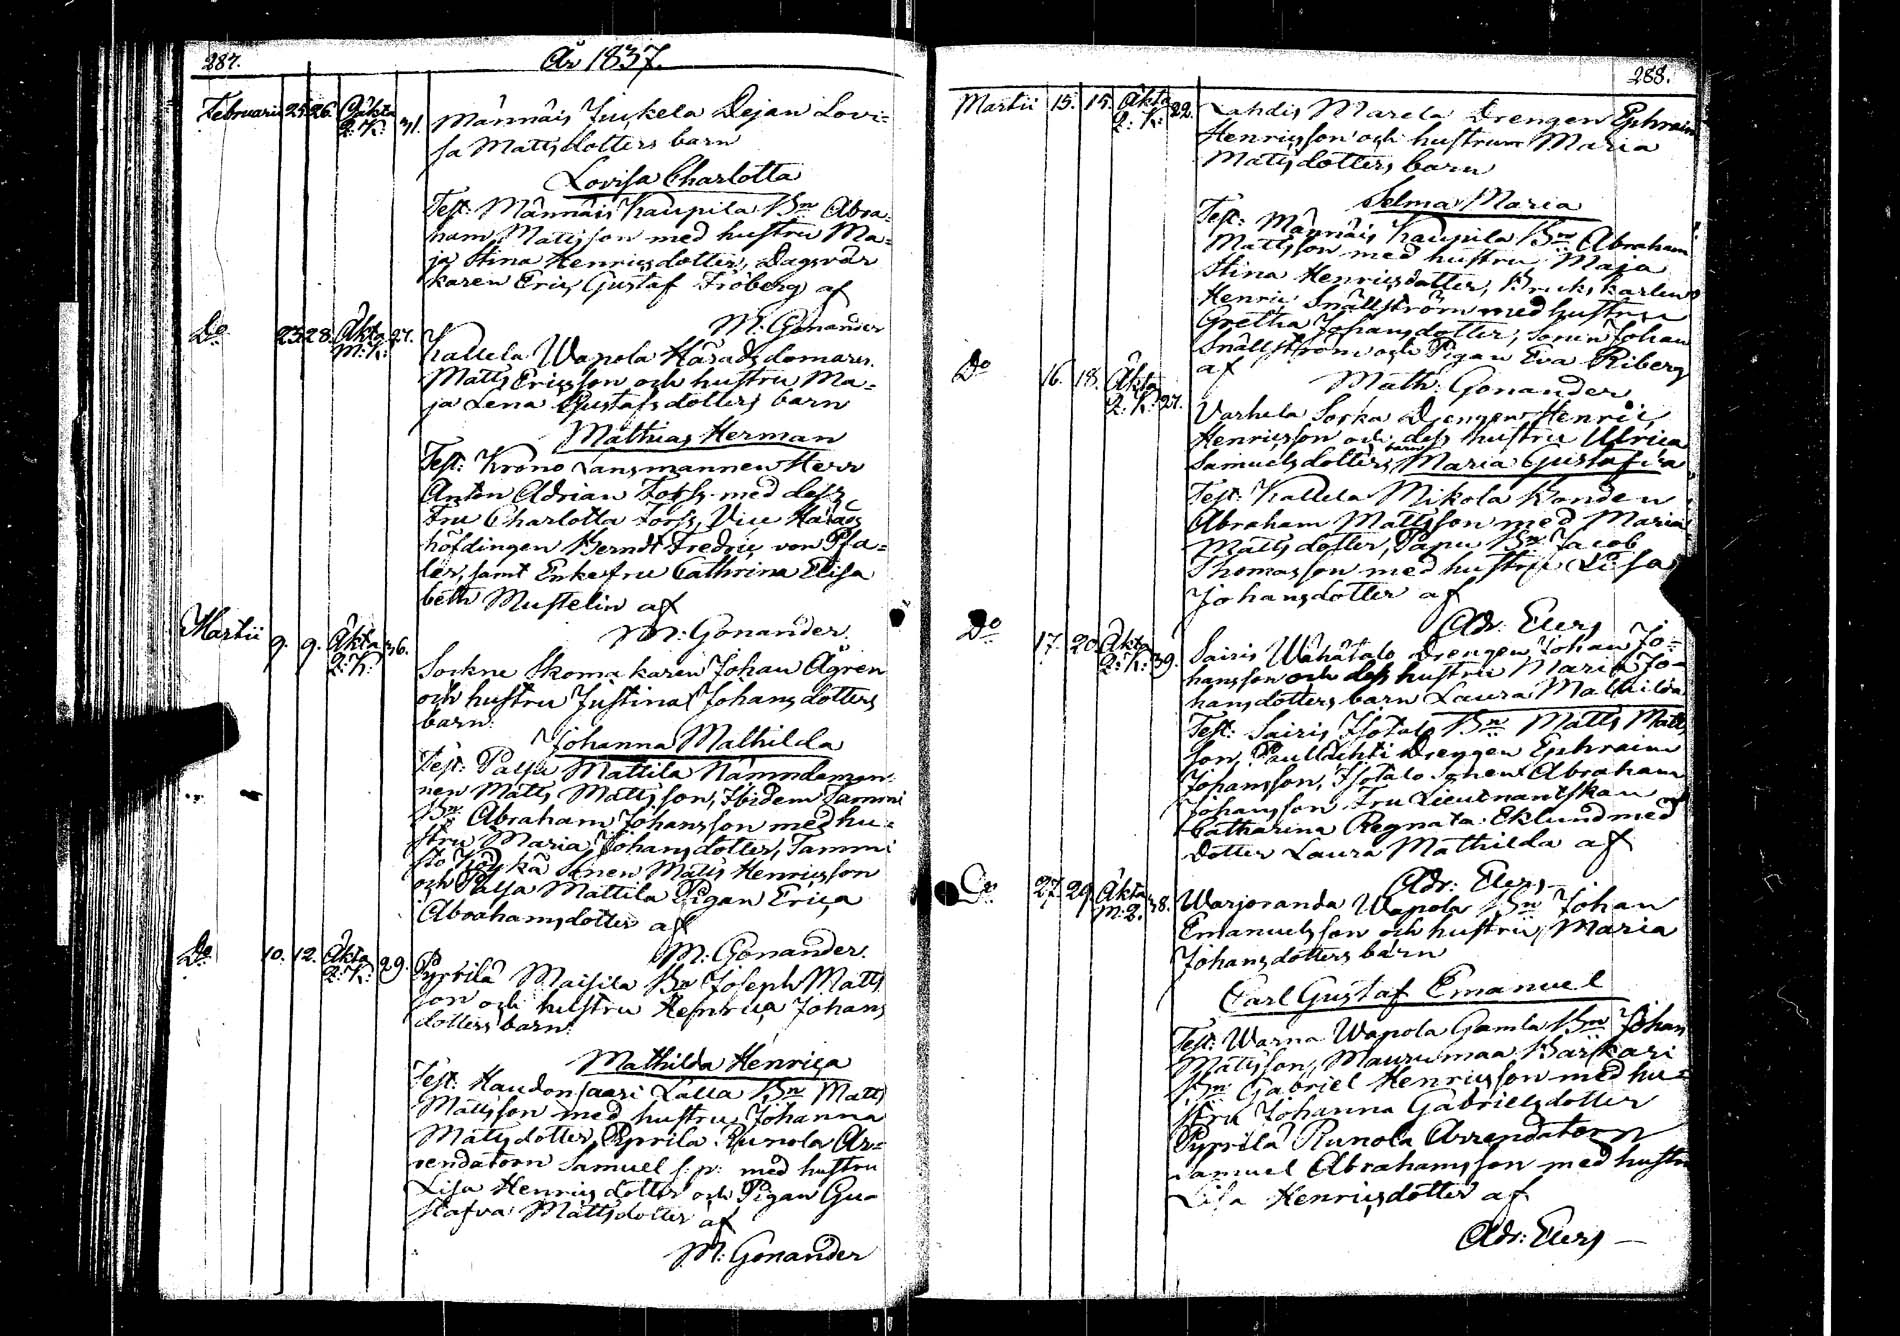 287.
År 1837.
Februarii 25. 26. Oäkta Q: K: 31. Männäis Juckela Dejan Lovi=
sa Mattsdotters barn
Lovisa Charlotta
Test: Männäis Kaupila Bn Abra=
ham Mattsson med hustru Ma=
ja Stina Henricsdotter, Dagsvär
karen Eric Gustaf Fröberg af
M: Gonander
Do 23. 28. Äkta M: K: 27. Kallela Wapola Häradsdomaren
Matts Ericsson och hustru Ma=
ja Lena Gustafsdotters barn
Mathias Herman
Test: Krono Länsmannen Herr
Anton Adrian Forss med dess
Fru Charlotta Forss, Vice Härads
höfdingen Berndt Fredric von Pfa=
ler, samt Enkefru Cathrina Elisa
beth Mustelin af
M: Gonander.
Martii 9. 9. Äkta Q: K: 36. Sockne Skomakaren Johan Ågren
och hustru Justina Johansdotters
barn
Johanna Mathilda
Test: Palsa Mattila Nämndeman
nen Matts Mattsson, Ibidem Tammi
Bn Abraham Johansson med hu=
stru Maria Johansdotter, Tammi
sto Jödykä Sonen Matts Henricsson
och Palsa Mattila Pigan Erica
Abrahamsdotter af
M: Gonander.
Do 10. 12. Äkta Q: K: 29. Pyrilä Maisila Bn Joseph Matts
son och hustru Henrica Johans
dotters barn
Mathilda Henrica
Test: Haudonsaari Lalla Bn Matts
Mattsson med hustru Johanna
Mattsdotter, Pyrila Runola Ar=
rendatorn Samuel s: p: med hustru
Lisa Henricsdotter och Pigan Gu=
stafva Mattsdotter af
M: Gonander
288.
Martii 15. 15. Äkta Q: K: 22. Lahdis Marela Drengen Ephraim
Henricsson och hustrun Maria
Mattsdotters barn
Selma Maria
Test: Männäis Kaupila Bn Abraham
Mattsson med hustru Maja
Stina Henricsdotter, Brukskarlen
Henric Snällström med hustru
Gretha Johansdotter, Sonen Johan
Snällström och Pigan Eva Riberg
af
Math: Gonander
Do 16. 18. Äkta Q: K: 27. Varhela Sorka Drengen Henric
Henricsson och dess hustru Ulrica
Samuelsdotters barn Maria Gustafva
Test: Kallela Mikola Bonden
Abraham Mattsson med Maria
Mattsdotter, Papu Bn Jacob
Thomasson med hustru Lisa
Johansdotter af
Adr: Elers
Do 17. 20. Äkta Q: K: 39. Sairis Wähätalo Drengen Johan Jo=
hansson och dess hustru Maria Jo=
hansdotters barn Laura Mathilda
Test: Sairis Isotalo Bn Matts Matts
son, Paullahti Drengen Ephraim
Johansson, Isotalo Sonen Abraham
Johansson, Fru Lieutnantskan
Catharina Regnata Eklund med
Dotter Laura Mathilda af
Adr: Elers
Do 27. 29. Äkta M: Q. 38. Warjoranda Wapola Bn Johan
Emanuelsson och hustru Maria
Johansdotters barn
Carl Gustaf Emanuel
Test: Warna Wapola Gamla Bn Johan
Mattsson, Maurumaa Karjkari
Bn Gabriel Henricsson med hu=
stru Johanna Gabrielsdotter
Pyrilä Runola Arrendatorn
Samuel Abrahamsson med hustru
Lisa Henricsdotter af
Adr: Elers